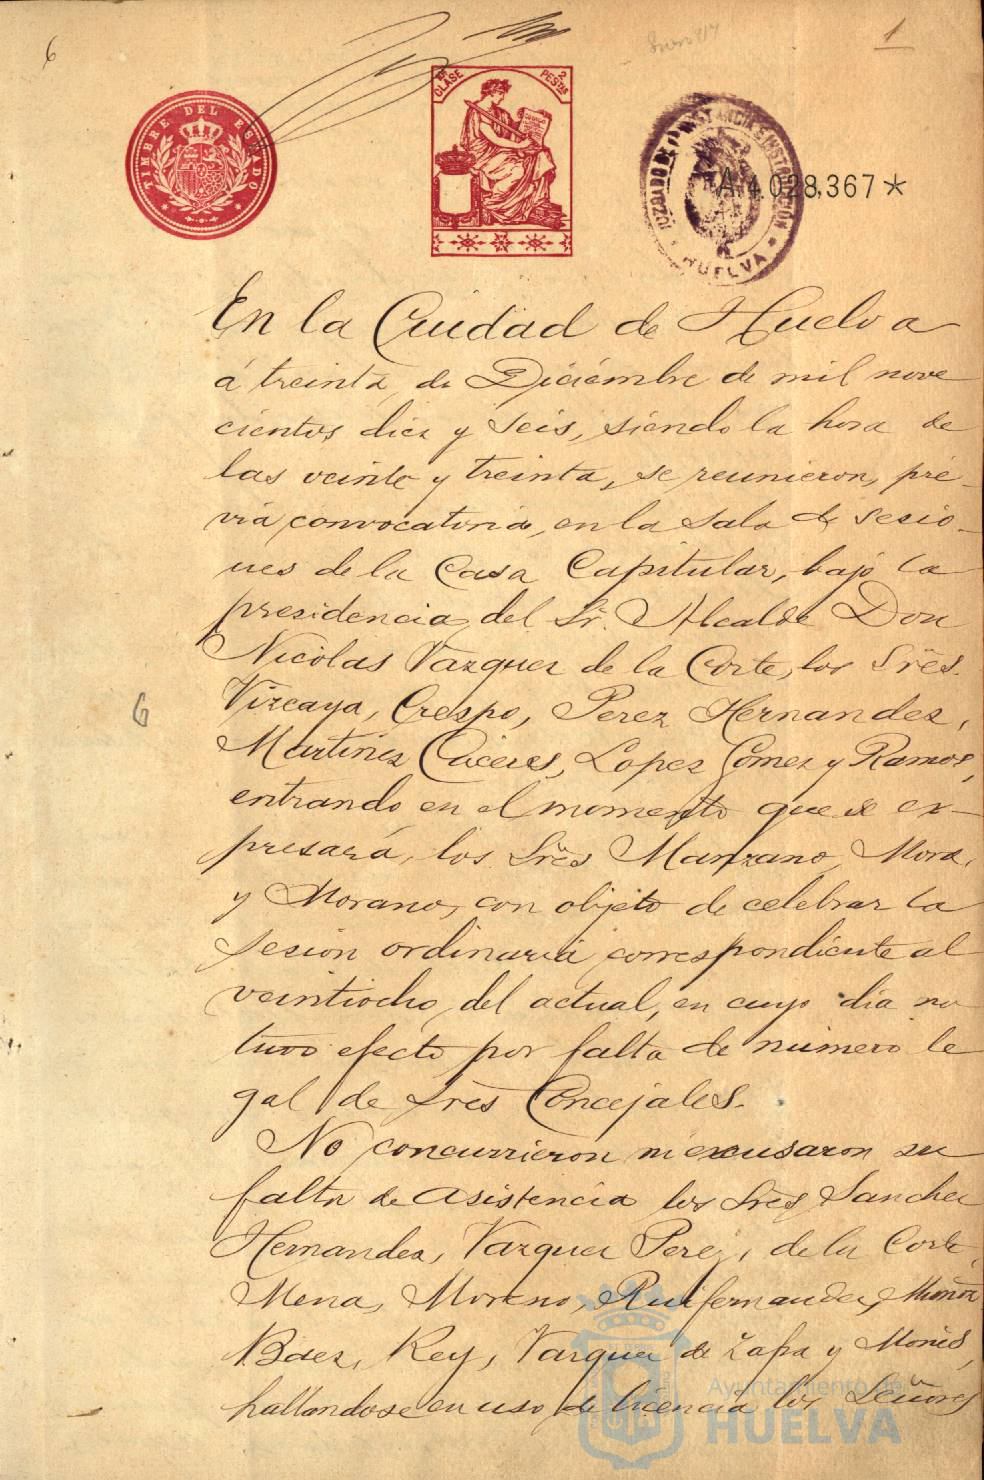 6
1
TIMBRE DEL ESTADO
CLASE
2
PESTAS
JUZGADO DE 1ª INSTANCIA E INSTRUCCIÓN
HUELVA
A.4.028,367*
En la Ciudad de Huelva
á treinta, de Diciembre de mil nove
cientos diez y seis, siendo la hora de
las veinte y treinta, se reunieron, pré-
via convocatoria, en la Sala de Sesio-
nes de la Casa Capitular, bajo la
presidencia del Sr. Alcalde Don
Nicolas Vazquez de la Corte, los Srēs.
Vizcaya, Crespo, Perez Hernandez,
Martinez Cáceres, Lopez Gomez y Ramos,
entrando en el momento que se ex-
presará, los Srēs Manzano, Mora,
y Morano, con objeto de celebrar la
sesión ordinaria correspondiente al
veintiocho del actual, en cuyo dia no
tuvo efecto por falta de número le
gal de Srēs Concejales.
6
No concurrieron ni excusaron su
falta de asistencia los Srēs Sanchez
Hernandez, Vazquez Perez, de la Corte
Mena, Moreno, Ruifernandez, Muñoz
Baez, Rey, Vazquez de Zafra y Monís,
hallandose en uso de licencia los Señores
Ayuntamiento de
HUELVA